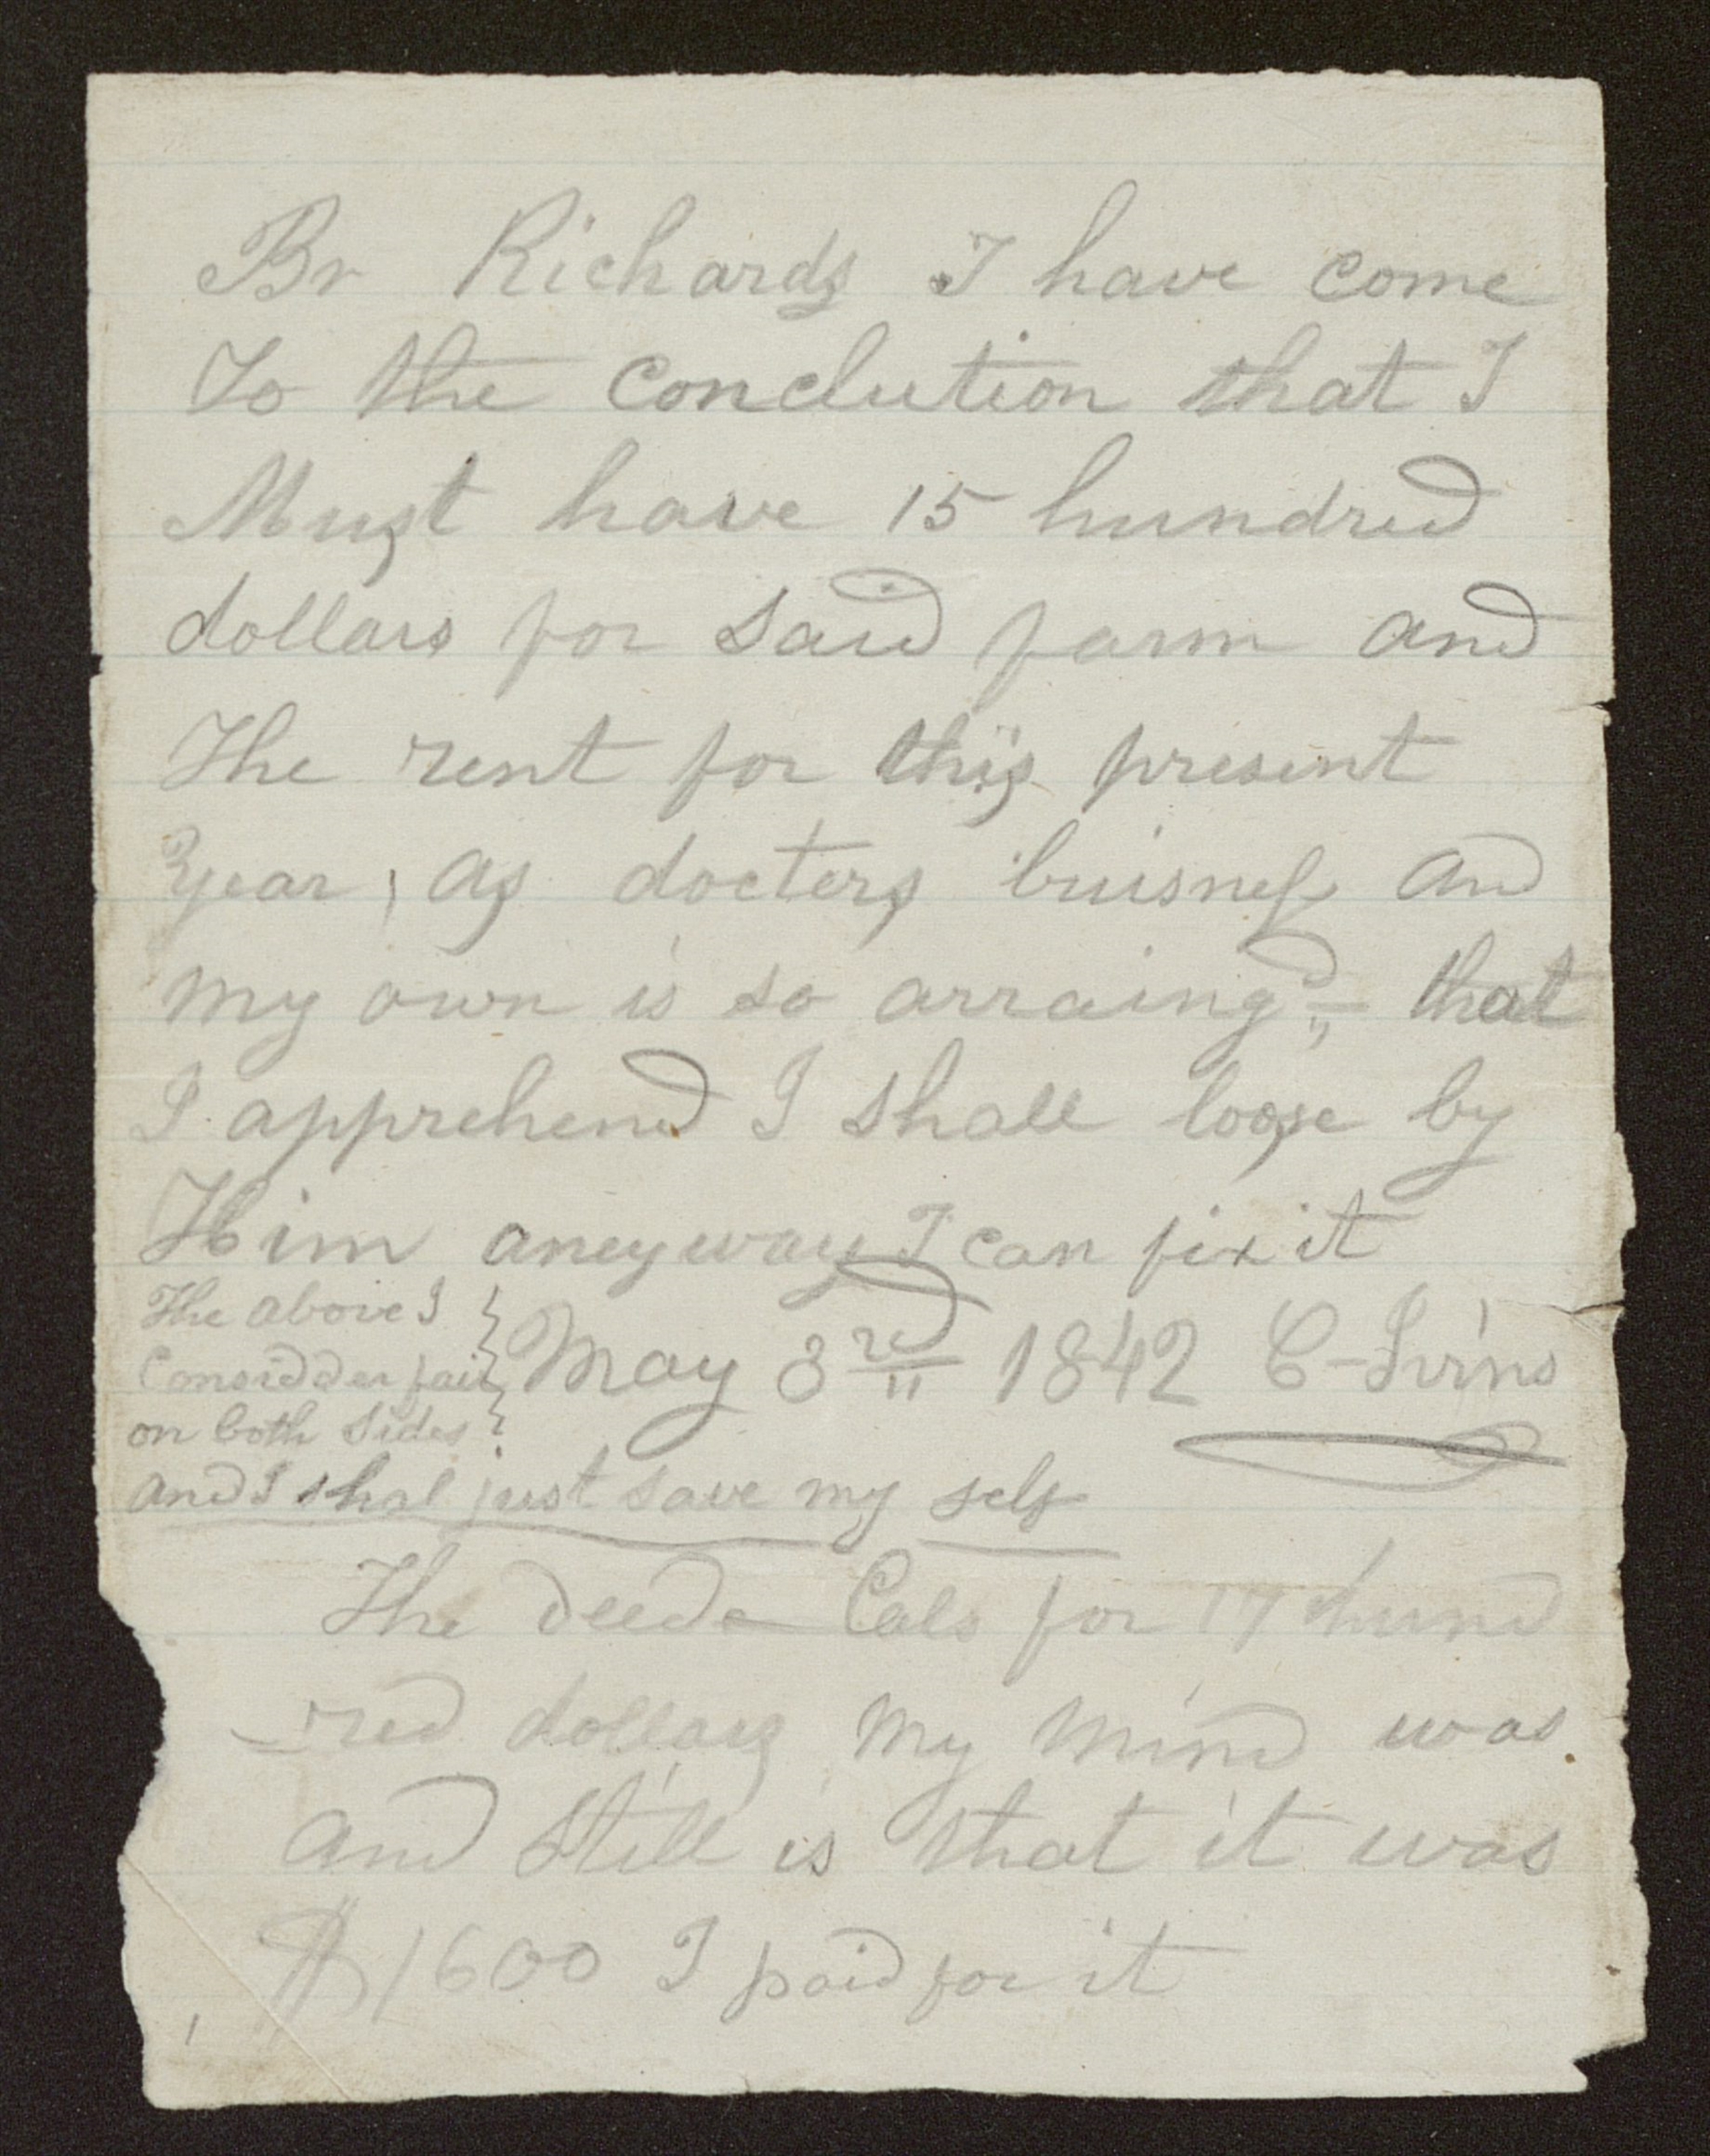 Br Richards I have come
To the conclution that I
Must have 15 hundred
dollars for said farm and
The rent for this present
Year, as docters buisness and
my own is so arraingd that
I apprehend I shall loose by
Him aneyway I can fix it
The above I
Considder fair
on both sides
May 3rd 1842 C-Ivins
and I shal just save my self
The deed Cals for 17 hund
-red dollars my mind was
and still is that it was
$1600 I paid for it